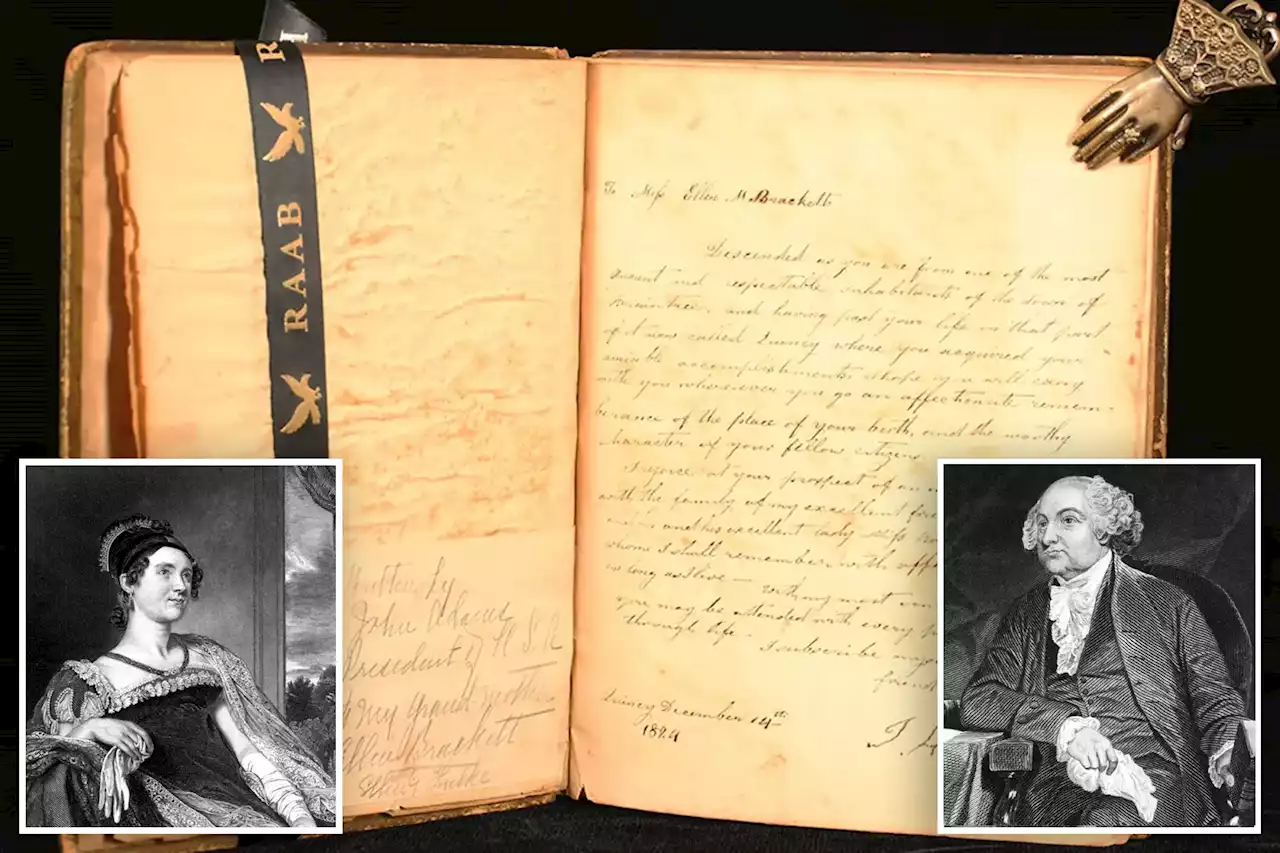 RAAB
Written by
John Adams
President of
my Grandmother
Ellen Brackett
To Miss Ellen M Brackett
Descended as you are from one of the most
ancient and respectable inhabitants of the town of
and having past your life in that part
of it now called Quincy where you acquired your
amiable accomplishments I hope you will carry
with you wherever you go an affectionate remem-
berance of the place of your birth, and the worthy
character of your fellow citizens
I rejoice at your prospect of an
with the family of my excellent
and his excellent lady
whom I shall remember with
as long as I live —
you may be attended with every
through life. I subscribe
friend
Quincy December 14th
1824
J